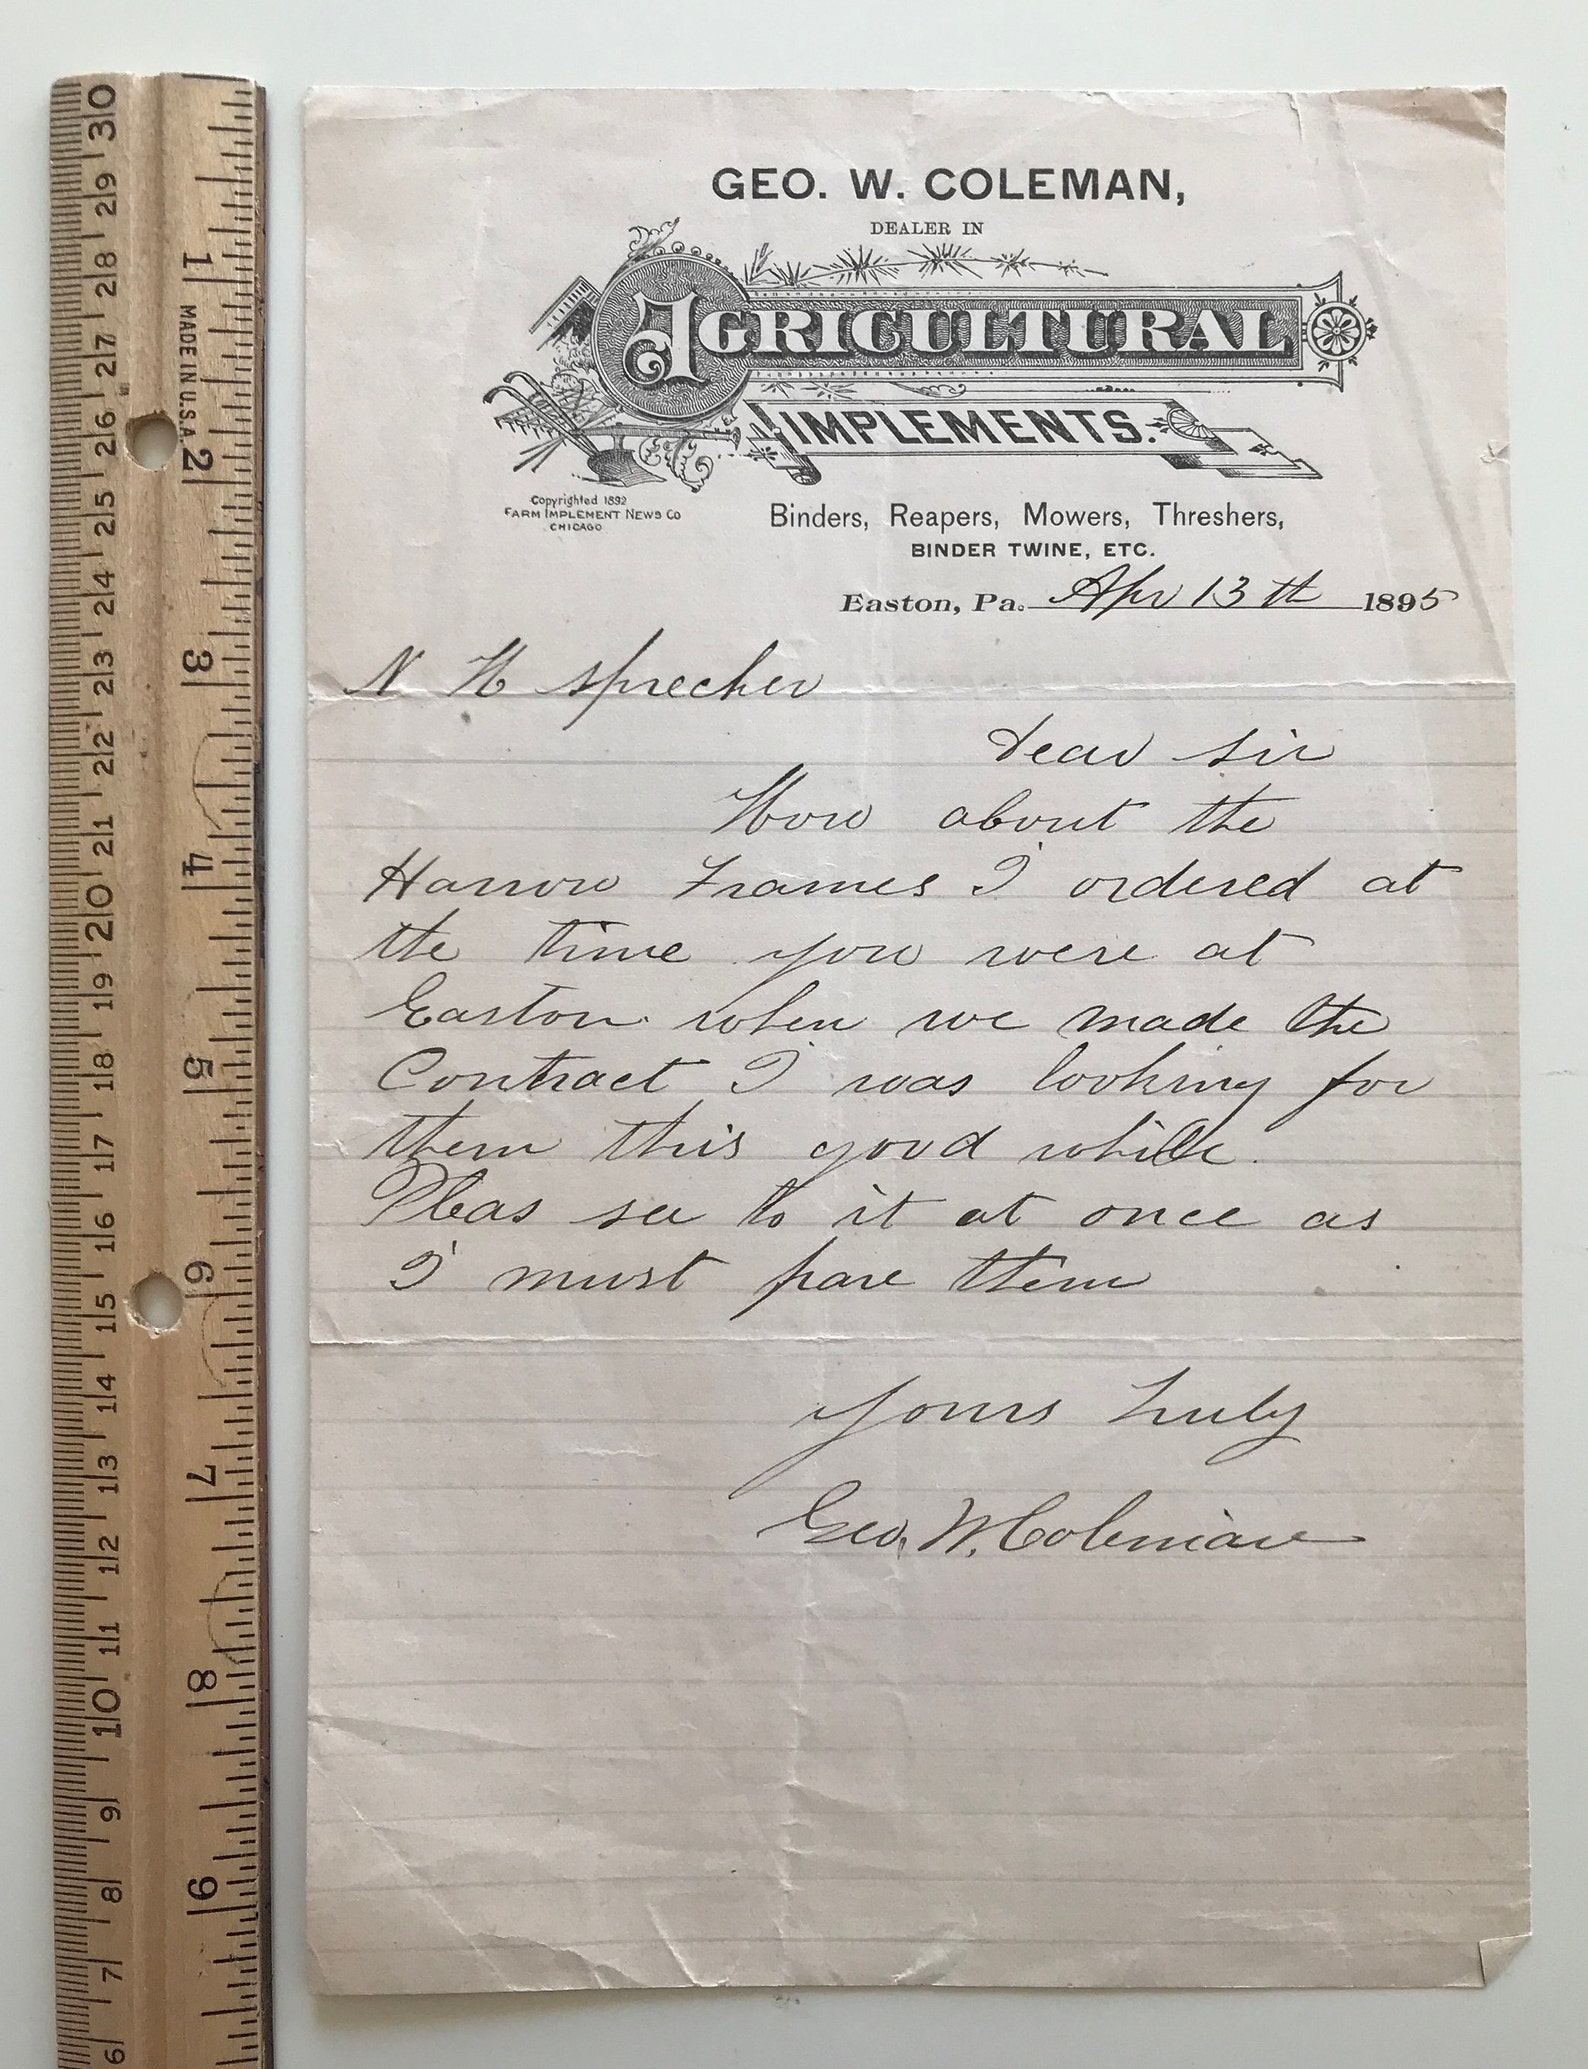 GEO. W. COLEMAN,
DEALER IN
AGRICULTURAL
IMPLEMENTS.
Copyrighted 1892
FARM IMPLEMENT NEWS CO
CHICAGO
Binders, Reapers, Mowers, Threshers,
BINDER TWINE, ETC.
Easton, Pa. Apr 13th 1895
N H Sprecher
Dear Sir
How about the
Harrow Frames I ordered at
the time you were at
Easton when we made the
Contract I was looking for
them this good while.
Pleas see to it at once as
I must have them
Yours Truly
Geo. W. Coleman
30 29 28 27 26 25 24 23 22 21 20 19 18 17 16 15 14 13 12 11 10 9 8 7 6
1 2 3 4 5 6 7 8 9
MADE IN U.S.A.